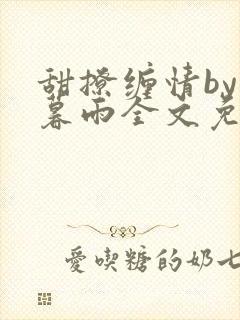 甜撩缠情by
暮雨全文免
愛喫糖的奶七